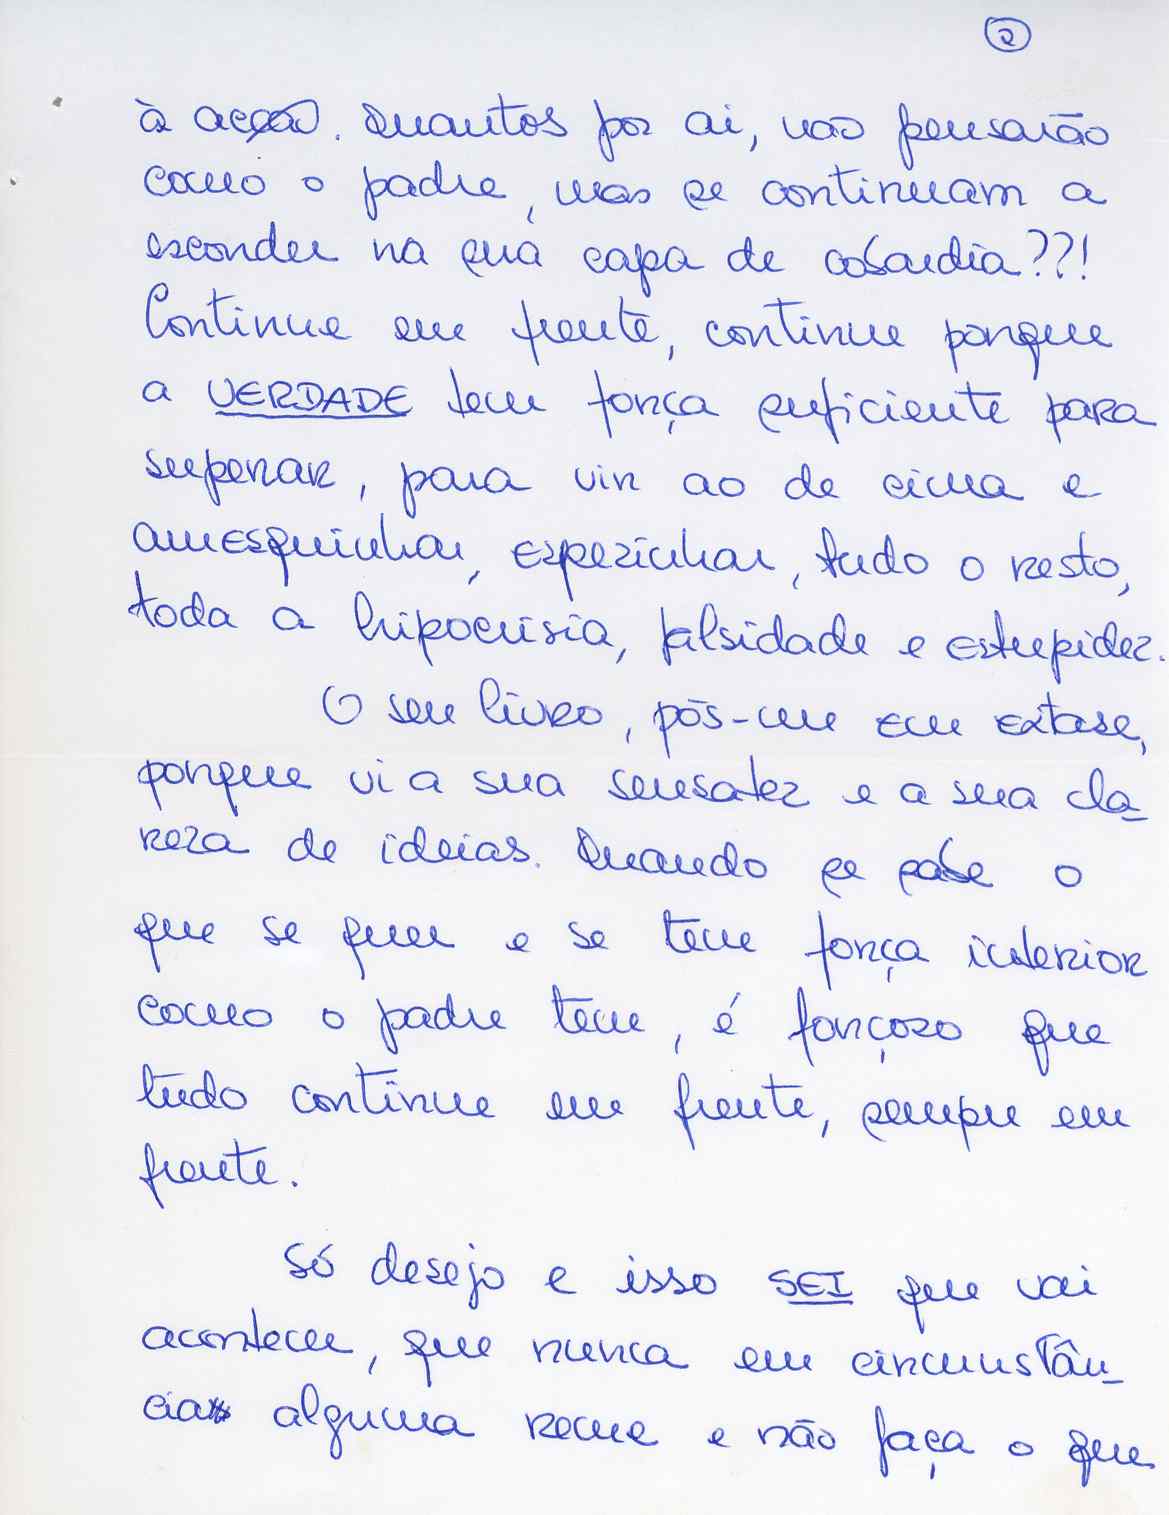 2
à acção. Quantos por ai, não pensarão
como o padre, mas se continuam a
esconder na sua capa de cobardia??!
Continue em frente, continue porque
a VERDADE tem força suficiente para
superar, para vir ao de cima e
amesquinhar, espezinhar, tudo o resto,
toda a hipocrisia, falsidade e estupidez.
O seu livro, pôs-me em extase,
porque vi a sua sensatez e a sua cla-
reza de ideias. Quando se sabe o
que se quer e se tem força interior
como o padre tem, é forçoso que
tudo continue em frente, sempre em
frente.
Só desejo e isso SEI que vai
acontecer, que nunca em circunstân-
cia alguma reme e não faça o que